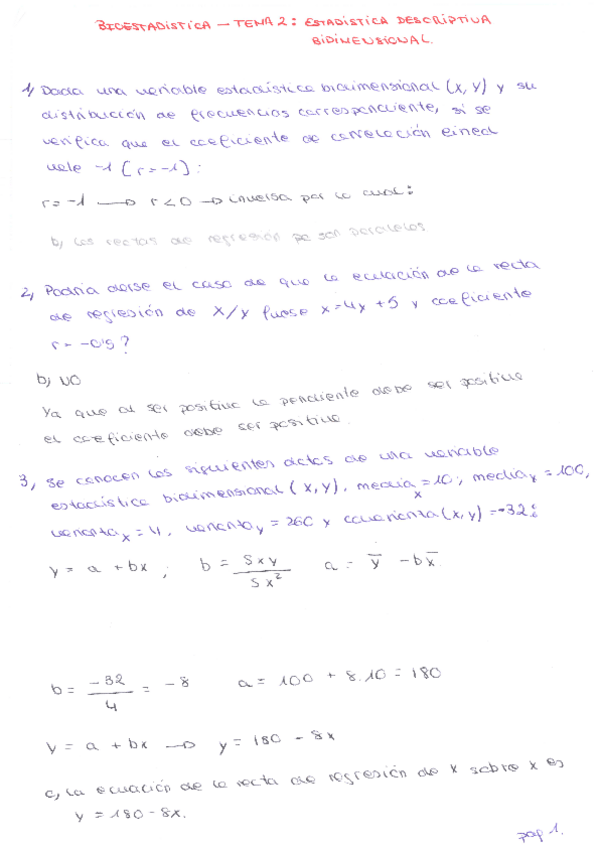 BIOESTADÍSTICA — TEMA 2: ESTADÍSTICA DESCRIPTIVA
BIDIMENSIONAL.
1) Dada una variable estadística bidimensional (x, y) y su
distribución de frecuencias correspondiente, si se
verifica que el coeficiente de correlación lineal
vale -1 [r=-1]:
r=-1 → r<0 → inversa por lo cual:
b) las rectas de regresión son paralelas
2) Podría darse el caso de que la ecuación de la recta
de regresión de X/y fuese x=4y+5 y coeficiente
r=-0'5?
b) NO
Ya que al ser positiva la pendiente debe ser positivo
el coeficiente debe ser positivo.
3) Se conocen los siguientes datos de una variable
estadística bidimensional (x, y). media x = 10; media y = 100,
varianza x = 4, varianza y = 260 y covarianza (x, y) = -32:
y = a + bx ; b = Sxy / Sx² a = y̅ - bx̅
b = -32 / 4 = -8 a = 100 + 8.10 = 180
y = a + bx → y = 180 - 8x
c) La ecuación de la recta de regresión de x sobre x es
y = 180 - 8x.
pag 1.